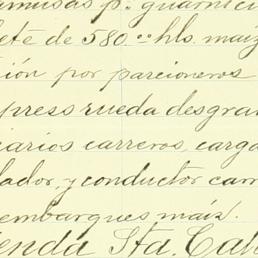 amusas p.a guarnici
ete de 580.00 hls. maiz
ión por parcioneros
press rueda desgran
arios carreros carga
lador y conductor carr
embarques maiz.
enda Sta. Cat